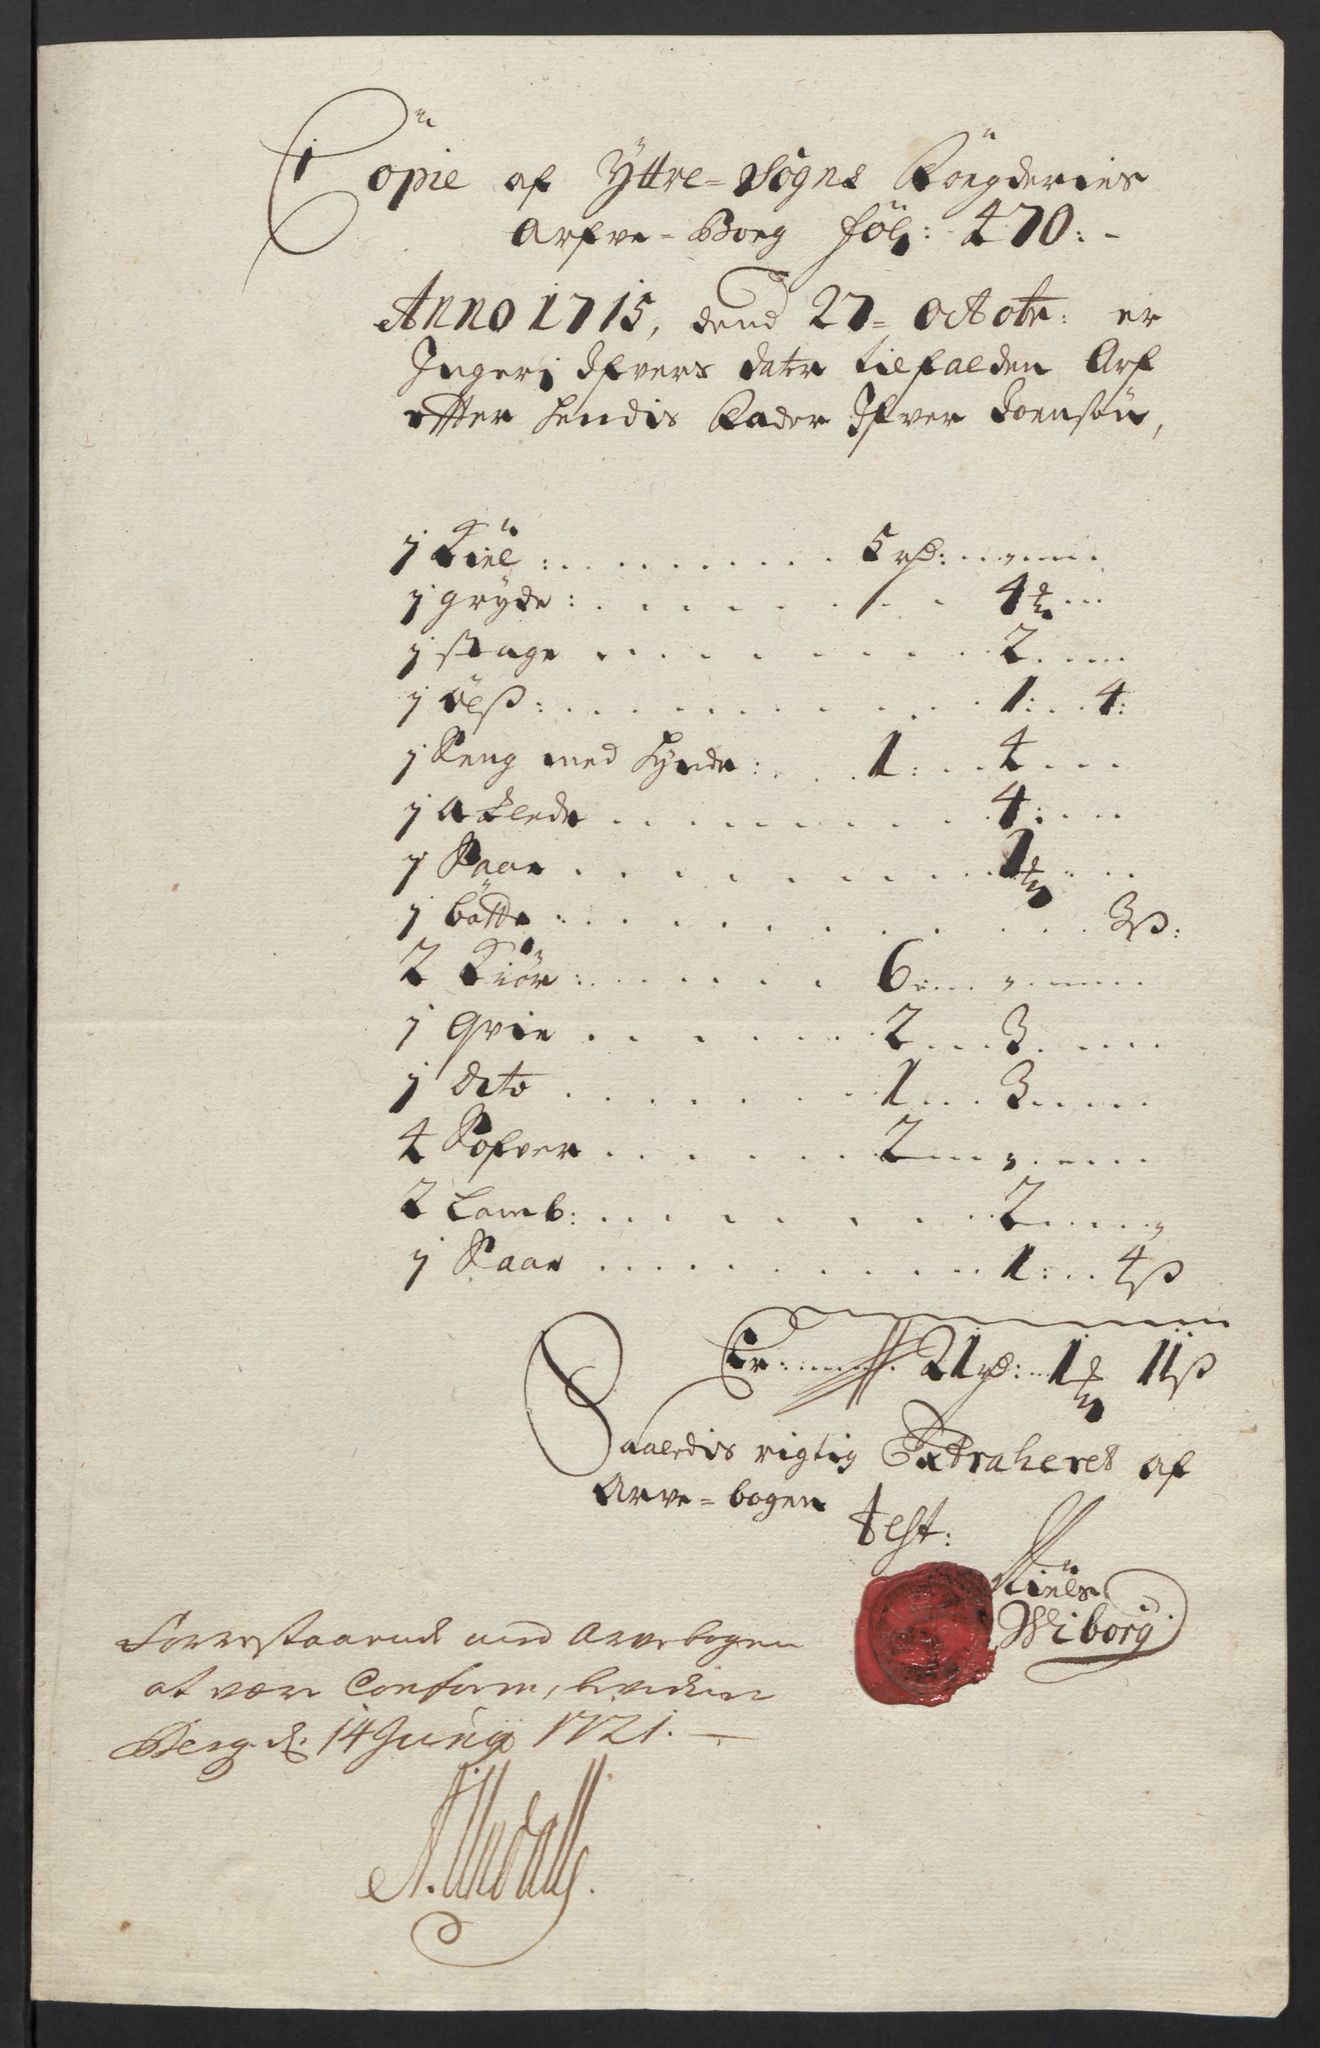 Copie af Yttre=Sogns Foegderies
Arfve=Boeg fol: 470:
Anno 1715, dend 27= Octobr: er
Ingeri Ifvers datr tilfalden Arf
efter hendis Fader Ifver Joensøn,
1 Kiel: 5 rd:
1 gryde: 4 mk
1 stage 2
1 Ø 1: 4:
1 Seng med hynde: 1: 4
1 Aklede 4:
1 Saae 1 mk
1 bøtte: 3 ß:
2 Kiør: 6
1 Qvie 2 3
1 dito 1 3
4 Sofver 2
2 Lamb: 2
1 Saae 1: 4 ß
Er: 21 rd: 1 mk 11 ß
Saaledis rigtig Extraheret af
Arve=bogen
test:
Niels
Wiborg
Forrestaaende med Arvebogen
at være Conform, bevidner
Berg. d. 14 Junij 1721.
A. Undall